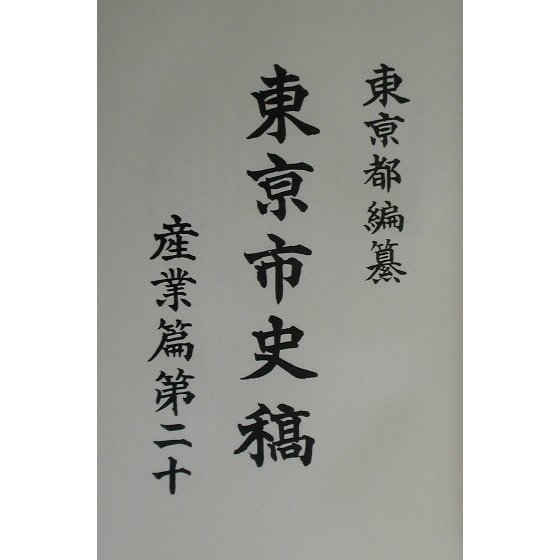 東京都編纂
東京市史稿
産業篇第二十